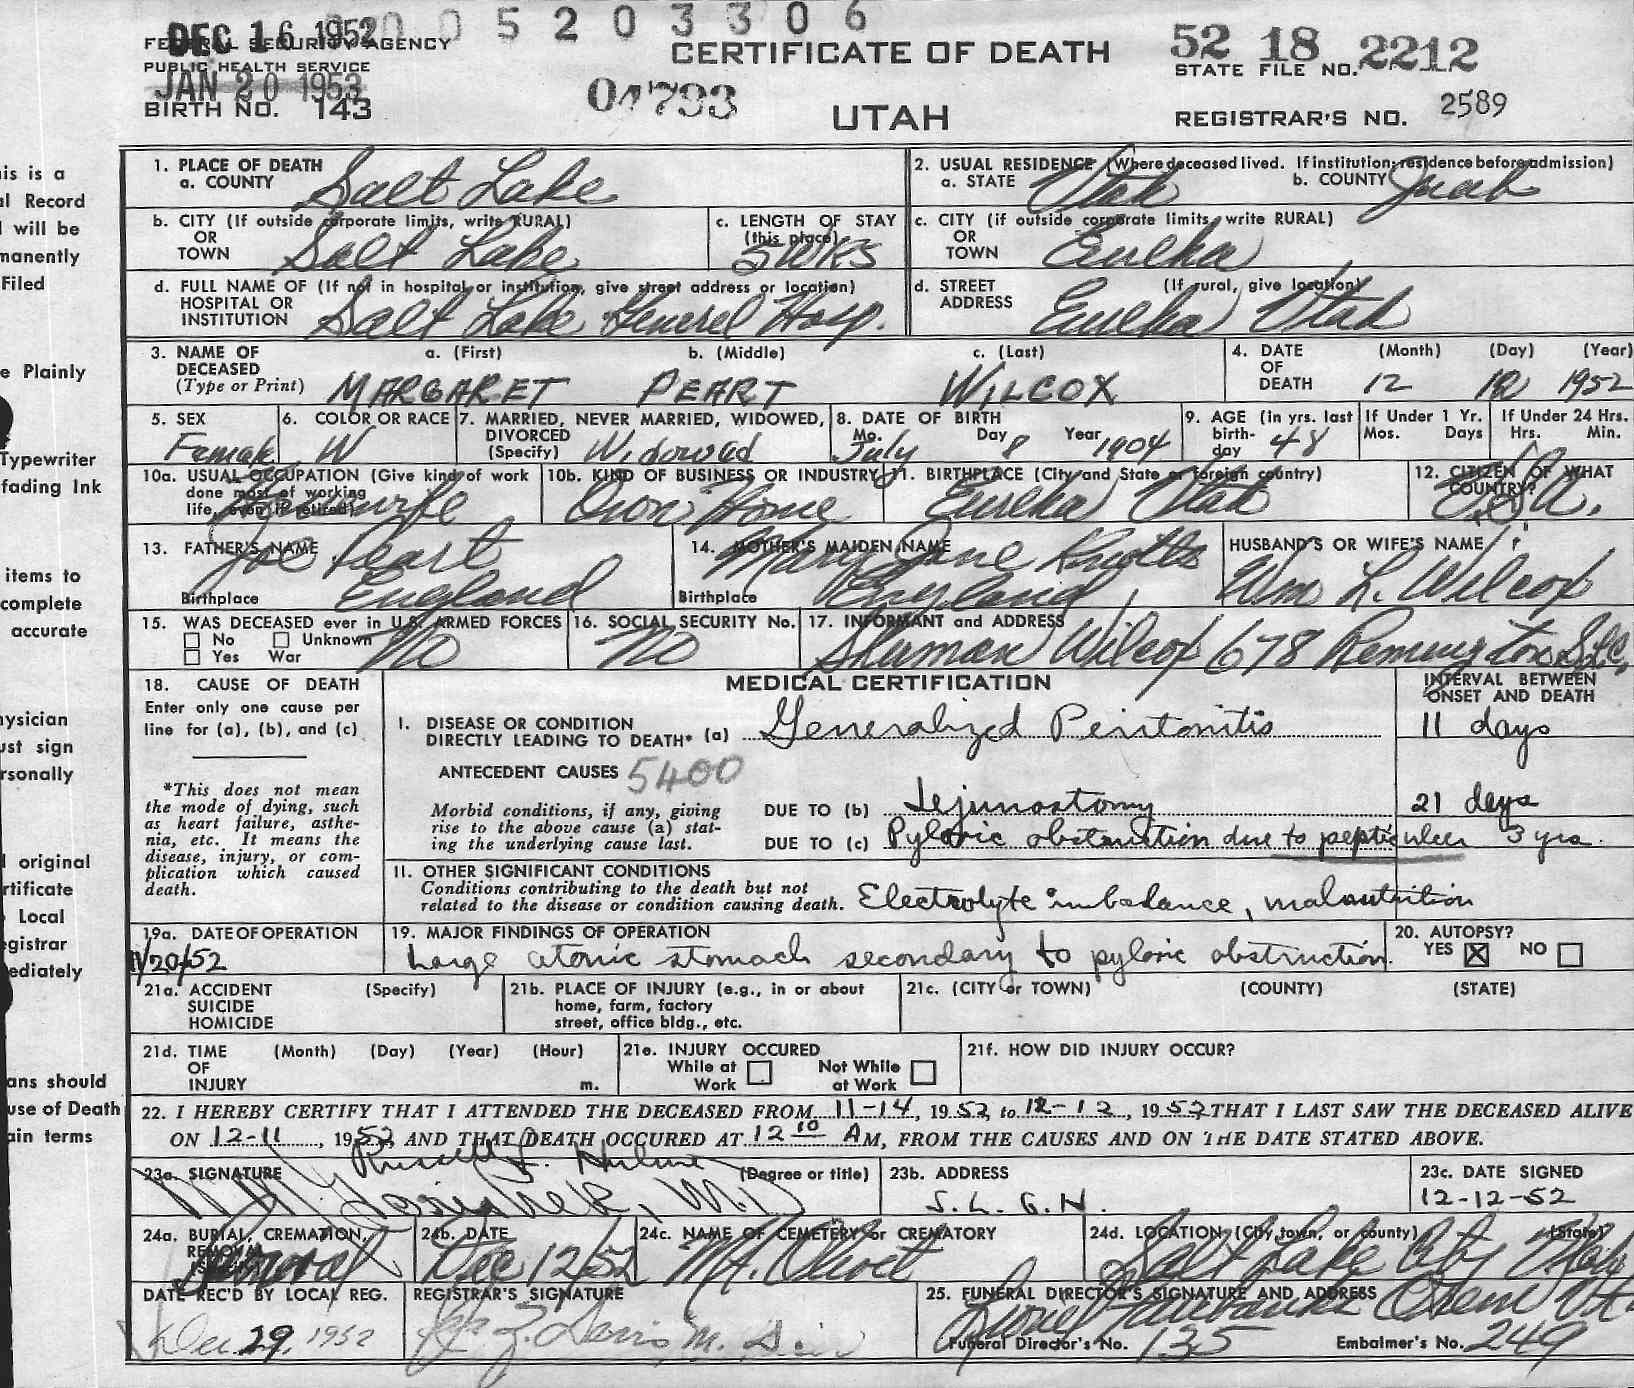 DEC 16 1952 0 0 5 2 0 3 3 0 6
FEDERAL SECURITY AGENCY
PUBLIC HEALTH SERVICE
JAN 20 1953
BIRTH NO. 143
04793
CERTIFICATE OF DEATH
UTAH
52 18 2212
STATE FILE NO.
REGISTRAR'S NO. 2589
his is a
al Record
l will be
manently
Filed
e Plainly
Typewriter
fading Ink
items to
complete
accurate
hysician
ust sign
rsonally
l original
rtificate
Local
egistrar
ediately
ans should
use of Death
ain terms
1. PLACE OF DEATH
a. COUNTY Salt Lake
2. USUAL RESIDENCE (Where deceased lived. If institution: residence before admission)
a. STATE Utah b. COUNTY Juab
b. CITY (If outside corporate limits, write RURAL)
OR
TOWN Salt Lake
c. LENGTH OF STAY
(this place)
5 WKS
c. CITY (if outside corporate limits, write RURAL)
OR
TOWN Eureka
d. FULL NAME OF (If not in hospital or institution, give street address or location)
HOSPITAL OR
INSTITUTION Salt Lake General Hosp.
d. STREET (If rural, give location)
ADDRESS Eureka Utah
3. NAME OF a. (First) b. (Middle) c. (Last)
DECEASED
(Type or Print) MARGARET PEART WILCOX
4. DATE (Month) (Day) (Year)
OF
DEATH 12 12 1952
5. SEX
Female
6. COLOR OR RACE
W
7. MARRIED, NEVER MARRIED, WIDOWED,
DIVORCED
(Specify) Widowed
8. DATE OF BIRTH
Mo. Day Year
July 8 1904
9. AGE (in yrs. last
birth-
day 48
If Under 1 Yr.
Mos. Days
If Under 24 Hrs.
Hrs. Min.
10a. USUAL OCCUPATION (Give kind of work
done most of working
life, even if retired)
Housewife
10b. KIND OF BUSINESS OR INDUSTRY
Own Home
11. BIRTHPLACE (City and State or foreign country)
Eureka Utah
12. CITIZEN OF WHAT
COUNTRY?
U.S.A.
13. FATHER'S NAME
Joe Peart
Birthplace England
14. MOTHER'S MAIDEN NAME
Mary Jane Knotts
Birthplace England
HUSBAND'S OR WIFE'S NAME
Wm L. Wilcox
15. WAS DECEASED ever in U.S. ARMED FORCES
No Unknown
Yes War
No
16. SOCIAL SECURITY No.
No
17. INFORMANT and ADDRESS
Sherman Wilcox 678 Remington SLC
18. CAUSE OF DEATH
Enter only one cause per
line for (a), (b), and (c)
*This does not mean
the mode of dying, such
as heart failure, asthe-
nia, etc. It means the
disease, injury, or com-
plication which caused
death.
MEDICAL CERTIFICATION
INTERVAL BETWEEN
ONSET AND DEATH
I. DISEASE OR CONDITION
DIRECTLY LEADING TO DEATH* (a) Generalized Peritonitis 11 days
ANTECEDENT CAUSES 5400
Morbid conditions, if any, giving
rise to the above cause (a) stat-
ing the underlying cause last.
DUE TO (b) Jejunostomy 21 days
DUE TO (c) Pyloric obstruction due to peptic ulcer 3 yrs.
II. OTHER SIGNIFICANT CONDITIONS
Conditions contributing to the death but not
related to the disease or condition causing death. Electrolyte imbalance, malnutrition
19a. DATE OF OPERATION
11/20/52
19. MAJOR FINDINGS OF OPERATION
Large atonic stomach secondary to pyloric obstruction.
20. AUTOPSY?
YES X NO
21a. ACCIDENT (Specify)
SUICIDE
HOMICIDE
21b. PLACE OF INJURY (e.g., in or about
home, farm, factory
street, office bldg., etc.
21c. (CITY or TOWN) (COUNTY) (STATE)
21d. TIME (Month) (Day) (Year) (Hour)
OF
INJURY m.
21e. INJURY OCCURED
While at Work
Not While at Work
21f. HOW DID INJURY OCCUR?
22. I HEREBY CERTIFY THAT I ATTENDED THE DECEASED FROM 11-14, 1952 to 12-12, 1952 THAT I LAST SAW THE DECEASED ALIVE
ON 12-11, 1952 AND THAT DEATH OCCURED AT 12 10 AM, FROM THE CAUSES AND ON THE DATE STATED ABOVE.
23a. SIGNATURE (Degree or title)
M.D.
23b. ADDRESS
S.L.G.H.
23c. DATE SIGNED
12-12-52
24a. BURIAL, CREMATION,
REMOVAL
Removal
24b. DATE
Dec 12/52
24c. NAME OF CEMETERY or CREMATORY
Mt. Olivet
24d. LOCATION (City, town, or county) (State)
Salt Lake City Utah
DATE REC'D BY LOCAL REG.
Dec 29, 1952
REGISTRAR'S SIGNATURE
25. FUNERAL DIRECTOR'S SIGNATURE AND ADDRESS
Fairbanks Orem Ut
Funeral Director's No. 135 Embalmer's No. 249